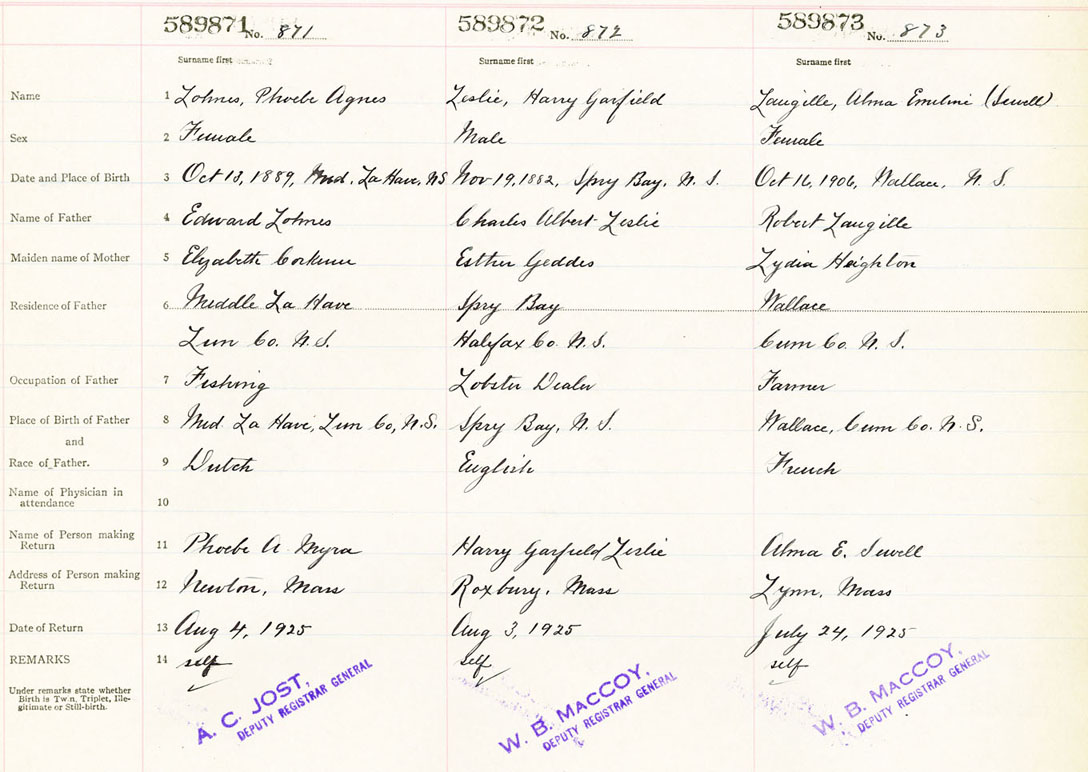 589871 No. 871 589872 No. 872 589873 No. 873
Surname first Surname first Surname first
Name 1 Lohnes, Phoebe Agnes Leslie, Harry Garfield Langille, Alma Emeline (Sewell)
Sex 2 Female Male Female
Date and Place of Birth 3 Oct 13, 1889, Mid. La Have, NS Nov 19, 1882, Spry Bay, N. S. Oct 16, 1906, Wallace, N. S.
Name of Father 4 Edward Lohnes Charles Albert Leslie Robert Langille
Maiden name of Mother 5 Elizabeth Corkum Esther Geddes Lydia Heighton
Residence of Father 6 Middle La Have Spry Bay Wallace
Lun Co. N.S. Halifax Co. N.S. Cum Co. N.S.
Occupation of Father 7 Fishing Lobster Dealer Farmer
Place of Birth of Father 8 Mid. La Have, Lun Co, N.S. Spry Bay, N.S. Wallace, Cum Co. N.S.
and
Race of Father. 9 Dutch English French
Name of Physician in
attendance 10
Name of Person making
Return 11 Phoebe A. Myra Harry Garfield Leslie Alma E. Sewell
Address of Person making
Return 12 Newton, Mass Roxbury, Mass Lynn, Mass
Date of Return 13 Aug 4, 1925 Aug 3, 1925 July 24, 1925
REMARKS 14 self self self
Under remarks state whether
Birth is Twin, Triplet, Ille-
gitimate or Still-birth.
A. C. JOST,
DEPUTY REGISTRAR GENERAL
W. B. MACCOY,
DEPUTY REGISTRAR GENERAL
W. B. MACCOY,
DEPUTY REGISTRAR GENERAL